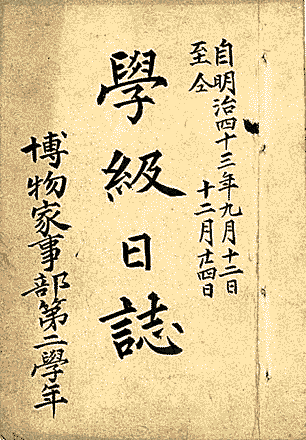 自明治四十三年九月十二日
至仝　十二月廿四日
學級日誌
博物家事部第二學年